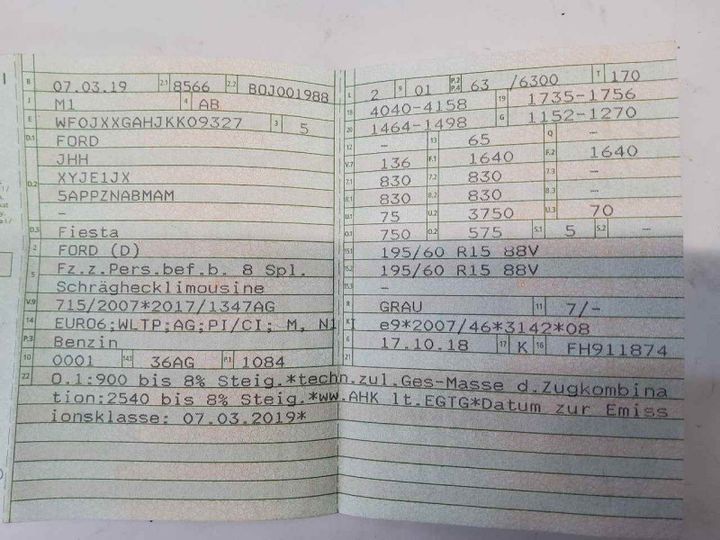 B 07.03.19 2.1 8566 2.2 BOJ001988
J M1 4 AB
E WF0JXXGAHJKK09327 3 5
D.1 FORD
JHH
D.2 XYJE1JX
5APPZNABMAM
–
D.3 Fiesta
2 FORD (D)
5 Fz.z.Pers.bef.b. 8 Spl.
Schräghecklimousine
V.9 715/2007*2017/1347AG
14 EURO6;WLTP;AG;PI/CI; M, N1 I
P.3 Benzin
10 0001 14.1 36AG P.1 1084
L 2 9 01 P.2 P.4 63 /6300 T 170
18 4040-4158 19 1735-1756
20 1464-1498 G 1152-1270
12 – 13 65 Q –
V.7 136 F.1 1640 F.2 1640
7.1 830 7.2 830 7.3 –
8.1 830 8.2 830 8.3 –
U.1 75 U.2 3750 U.3 70
O.1 750 O.2 575 S.1 5 S.2 –
15.1 195/60 R15 88V
15.2 195/60 R15 88V
15.3 –
R GRAU 11 7/-
K e9*2007/46*3142*08
6 17.10.18 17 K 16 FH911874
21
22 O.1:900 bis 8% Steig.*techn.zul.Ges-Masse d.Zugkombina
tion:2540 bis 8% Steig.*ww.AHK lt.EGTG*Datum zur Emiss
ionsklasse: 07.03.2019*